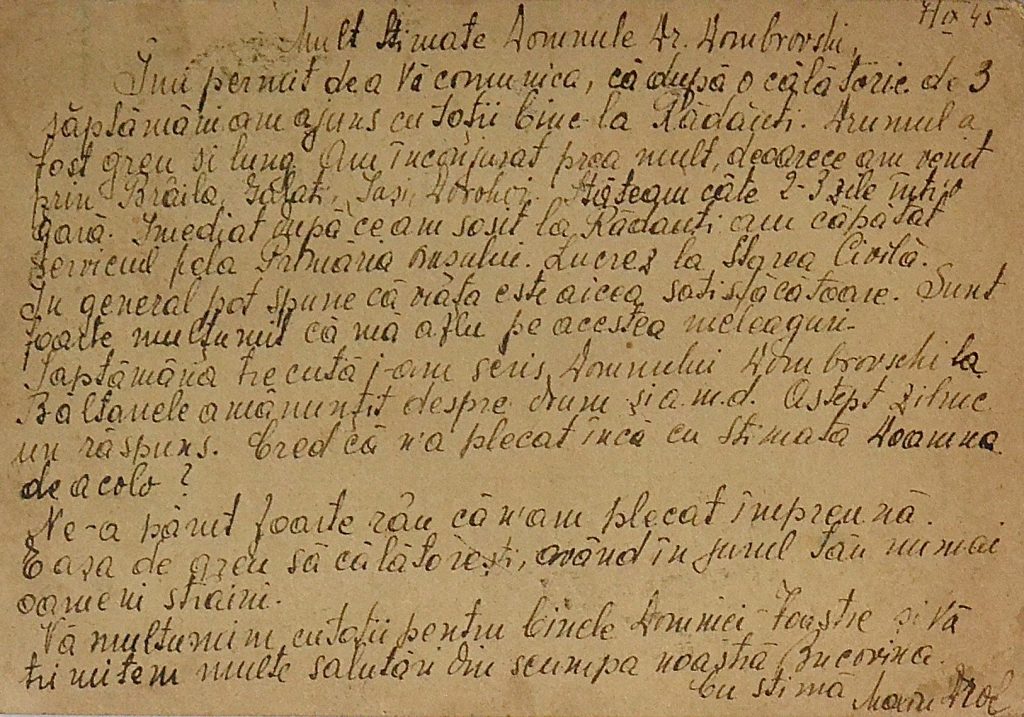 7/IX 45
Mult Stimate Domnule Dr. Dombrovski,
Îmi permit de a Vă comunica, că după o călătorie de 3
săptămâni am ajuns cu toții bine la Rădăuți. Drumul a
fost greu și lung. Am înconjurat prea mult, deoarece am venit
prin Brăila, Galați, Iași, Dorohoi. Stăteam câte 2-3 zile într'o
gară. Imediat după ce am sosit la Rădăuți am căpătat
serviciul la Primăria orașului. Lucrez la Starea Civilă.
În general pot spune că viața este aicea satisfăcătoare. Sunt
foarte mulțumit că mă aflu pe acestea meleaguri.
Săptămâna trecută i-am scris Domnului Dombrovschi la
amănunțit despre drum și a.m.d. Aștept zilnic
un răspuns. Cred că n'a plecat încă cu stimata Doamna
de acolo?
Ne-a părut foarte rău că n'am plecat împreună.
E așa de greu să călătorești, având în jurul tău numai
oameni străini.
Vă mulțumim cu toții pentru binele Domniei-Voastre și Vă
trimitem multe salutări din scumpa noastră Bucovina.
Cu stimă